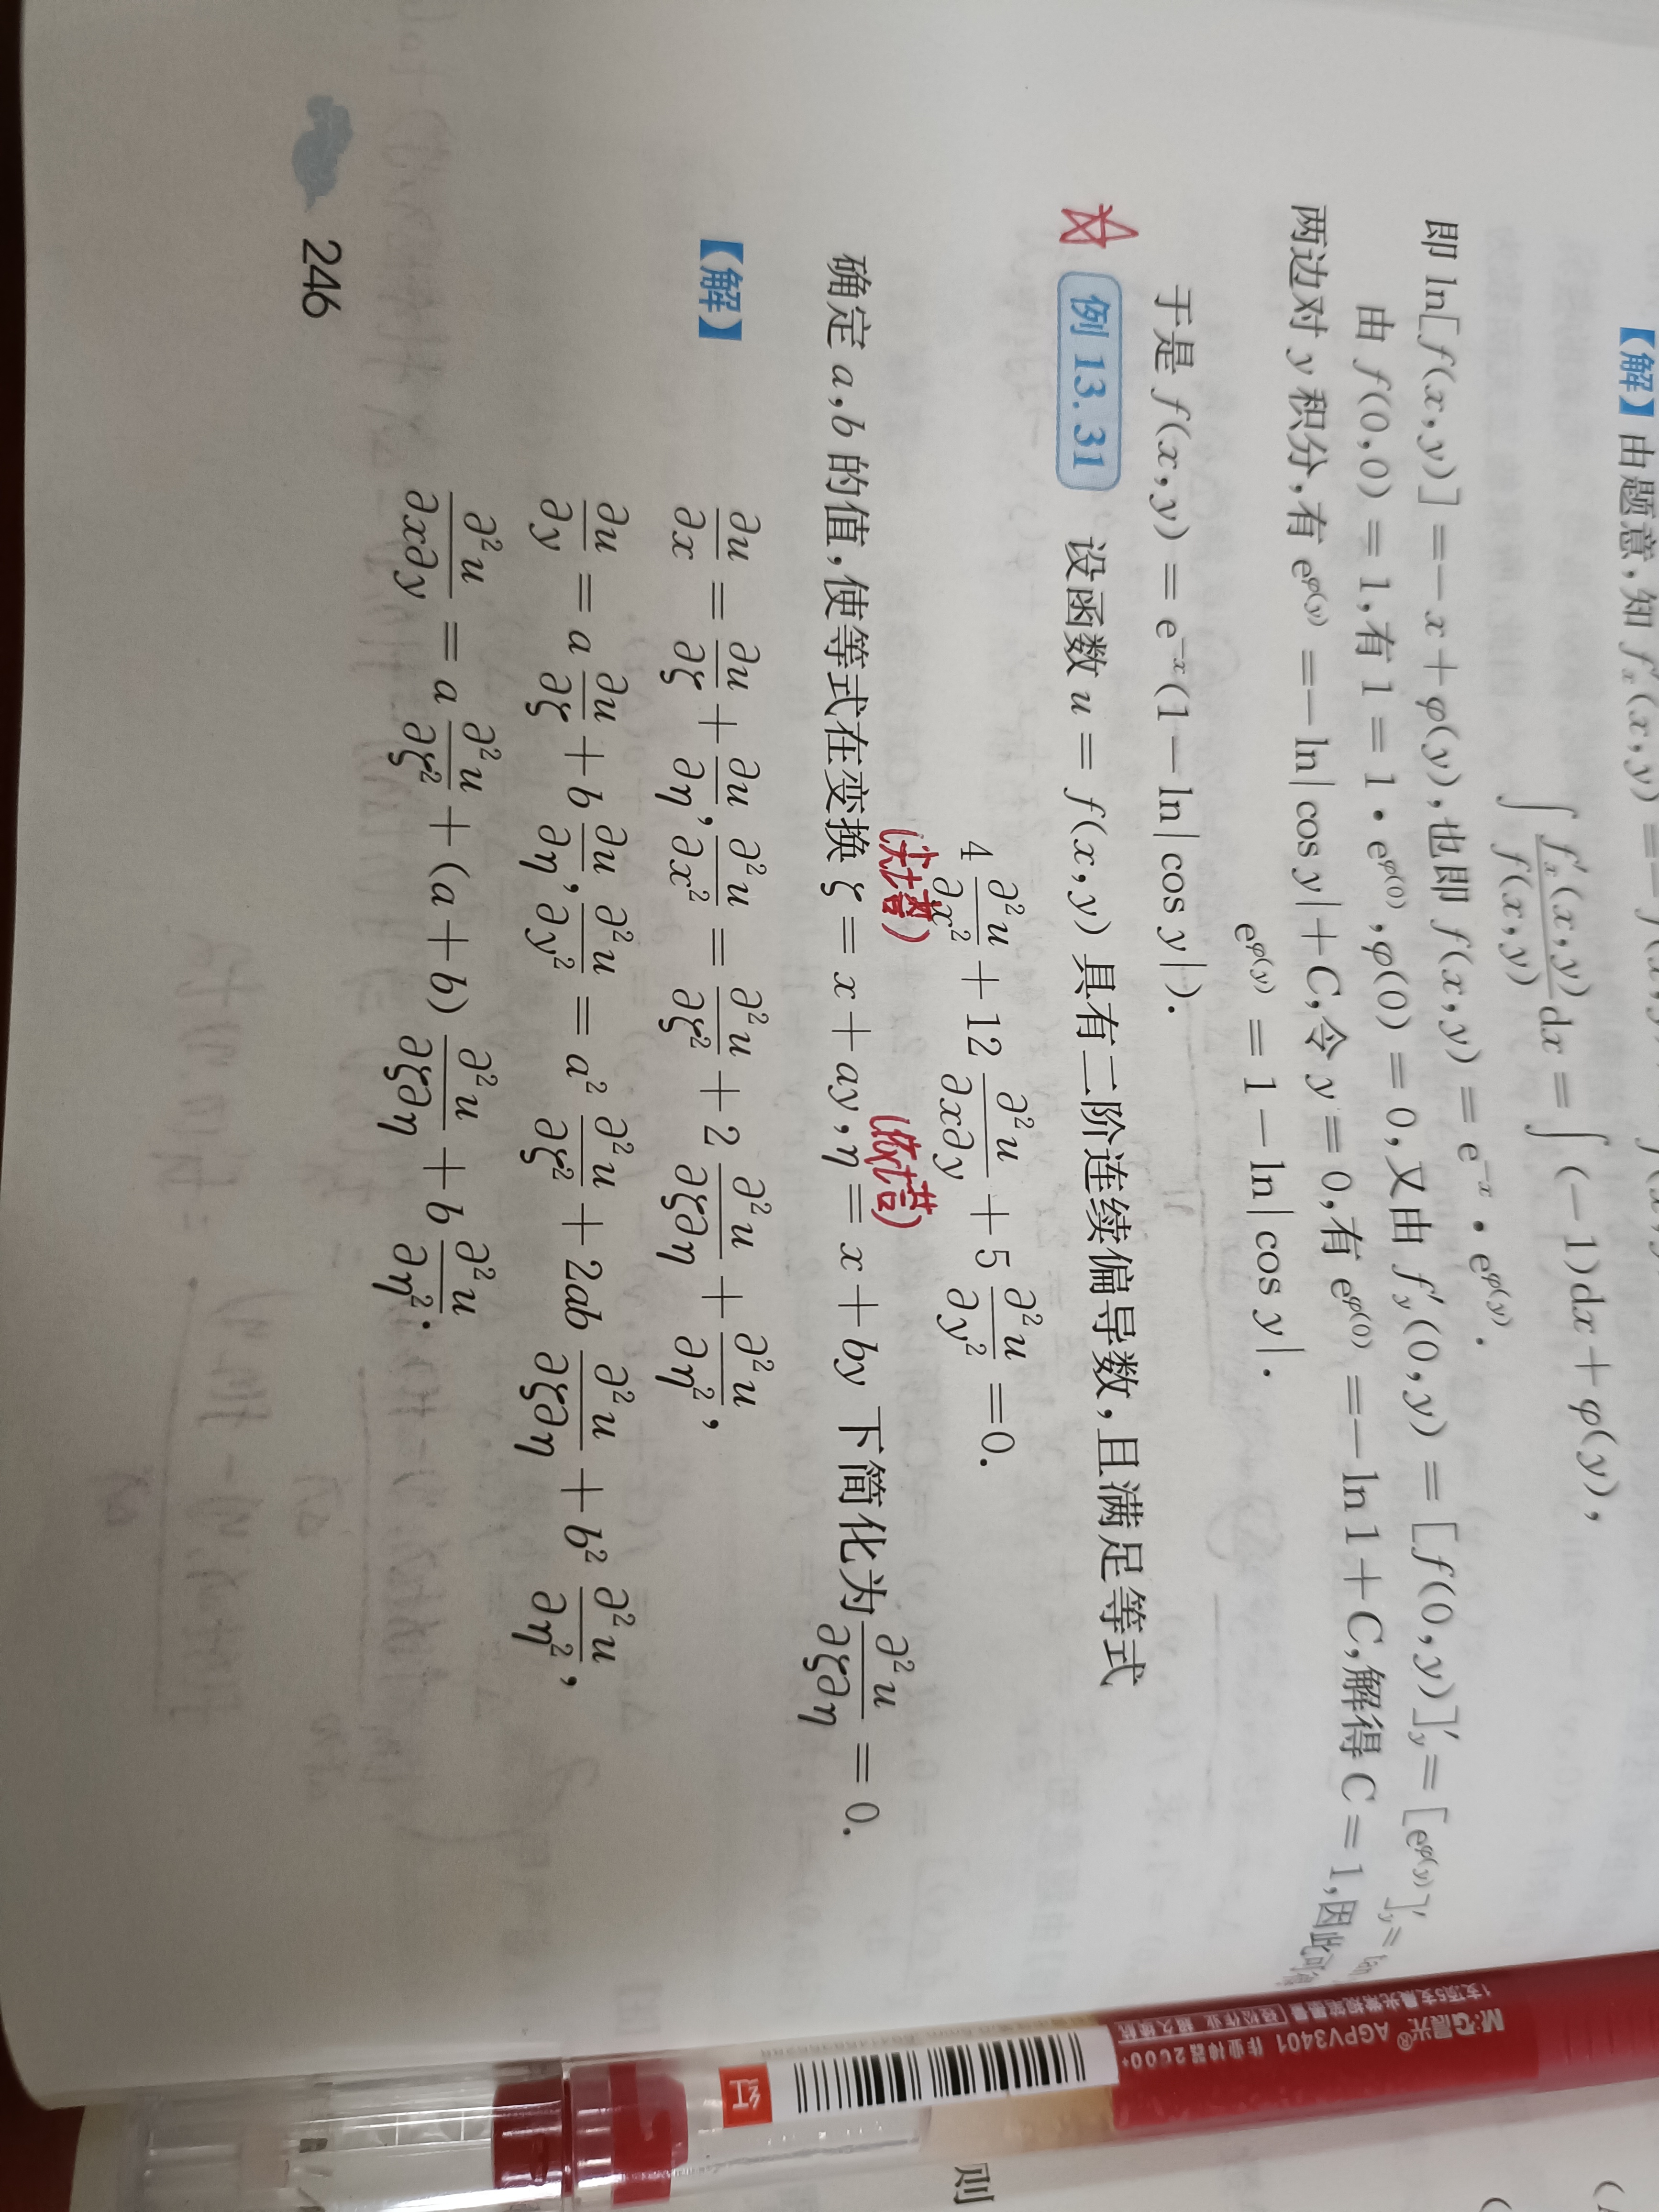 【解】由题意,知 f'ₓ(x,y) = −f(x,y)
∫ f'ₓ(x,y)/f(x,y) dx = ∫(−1)dx + φ(y),
即 ln[f(x,y)] = −x + φ(y),也即 f(x,y) = e^{−x} · e^{φ(y)}.
由 f(0,0) = 1,有 1 = 1 · e^{φ(0)},φ(0) = 0,又由 f'_y(0,y) = [f(0,y)]'_y = [e^{φ(y)}]'_y = tan
两边对 y 积分,有 e^{φ(y)} = −ln|cos y| + C,令 y = 0,有 e^{φ(0)} = −ln 1 + C,解得 C = 1,因此可得
e^{φ(y)} = 1 − ln|cos y|.
于是 f(x,y) = e^{−x}(1 − ln|cos y|).
例 13.31 设函数 u = f(x,y) 具有二阶连续偏导数,且满足等式
4 ∂²u/∂x² + 12 ∂²u/∂x∂y + 5 ∂²u/∂y² = 0.
确定 a,b 的值,使等式在变换 ζ = x + ay,η = x + by 下简化为 ∂²u/∂ζ∂η = 0.
【解】 ∂u/∂x = ∂u/∂ζ + ∂u/∂η, ∂²u/∂x² = ∂²u/∂ζ² + 2 ∂²u/∂ζ∂η + ∂²u/∂η²,
∂u/∂y = a ∂u/∂ζ + b ∂u/∂η, ∂²u/∂y² = a² ∂²u/∂ζ² + 2ab ∂²u/∂ζ∂η + b² ∂²u/∂η²,
∂²u/∂x∂y = a ∂²u/∂ζ² + (a + b) ∂²u/∂ζ∂η + b ∂²u/∂η².
246
M&G晨光® AGPV3401 作业神器2000+
1支顶5支晨光常规笔墨量 轻松作业 超久续航
红
则